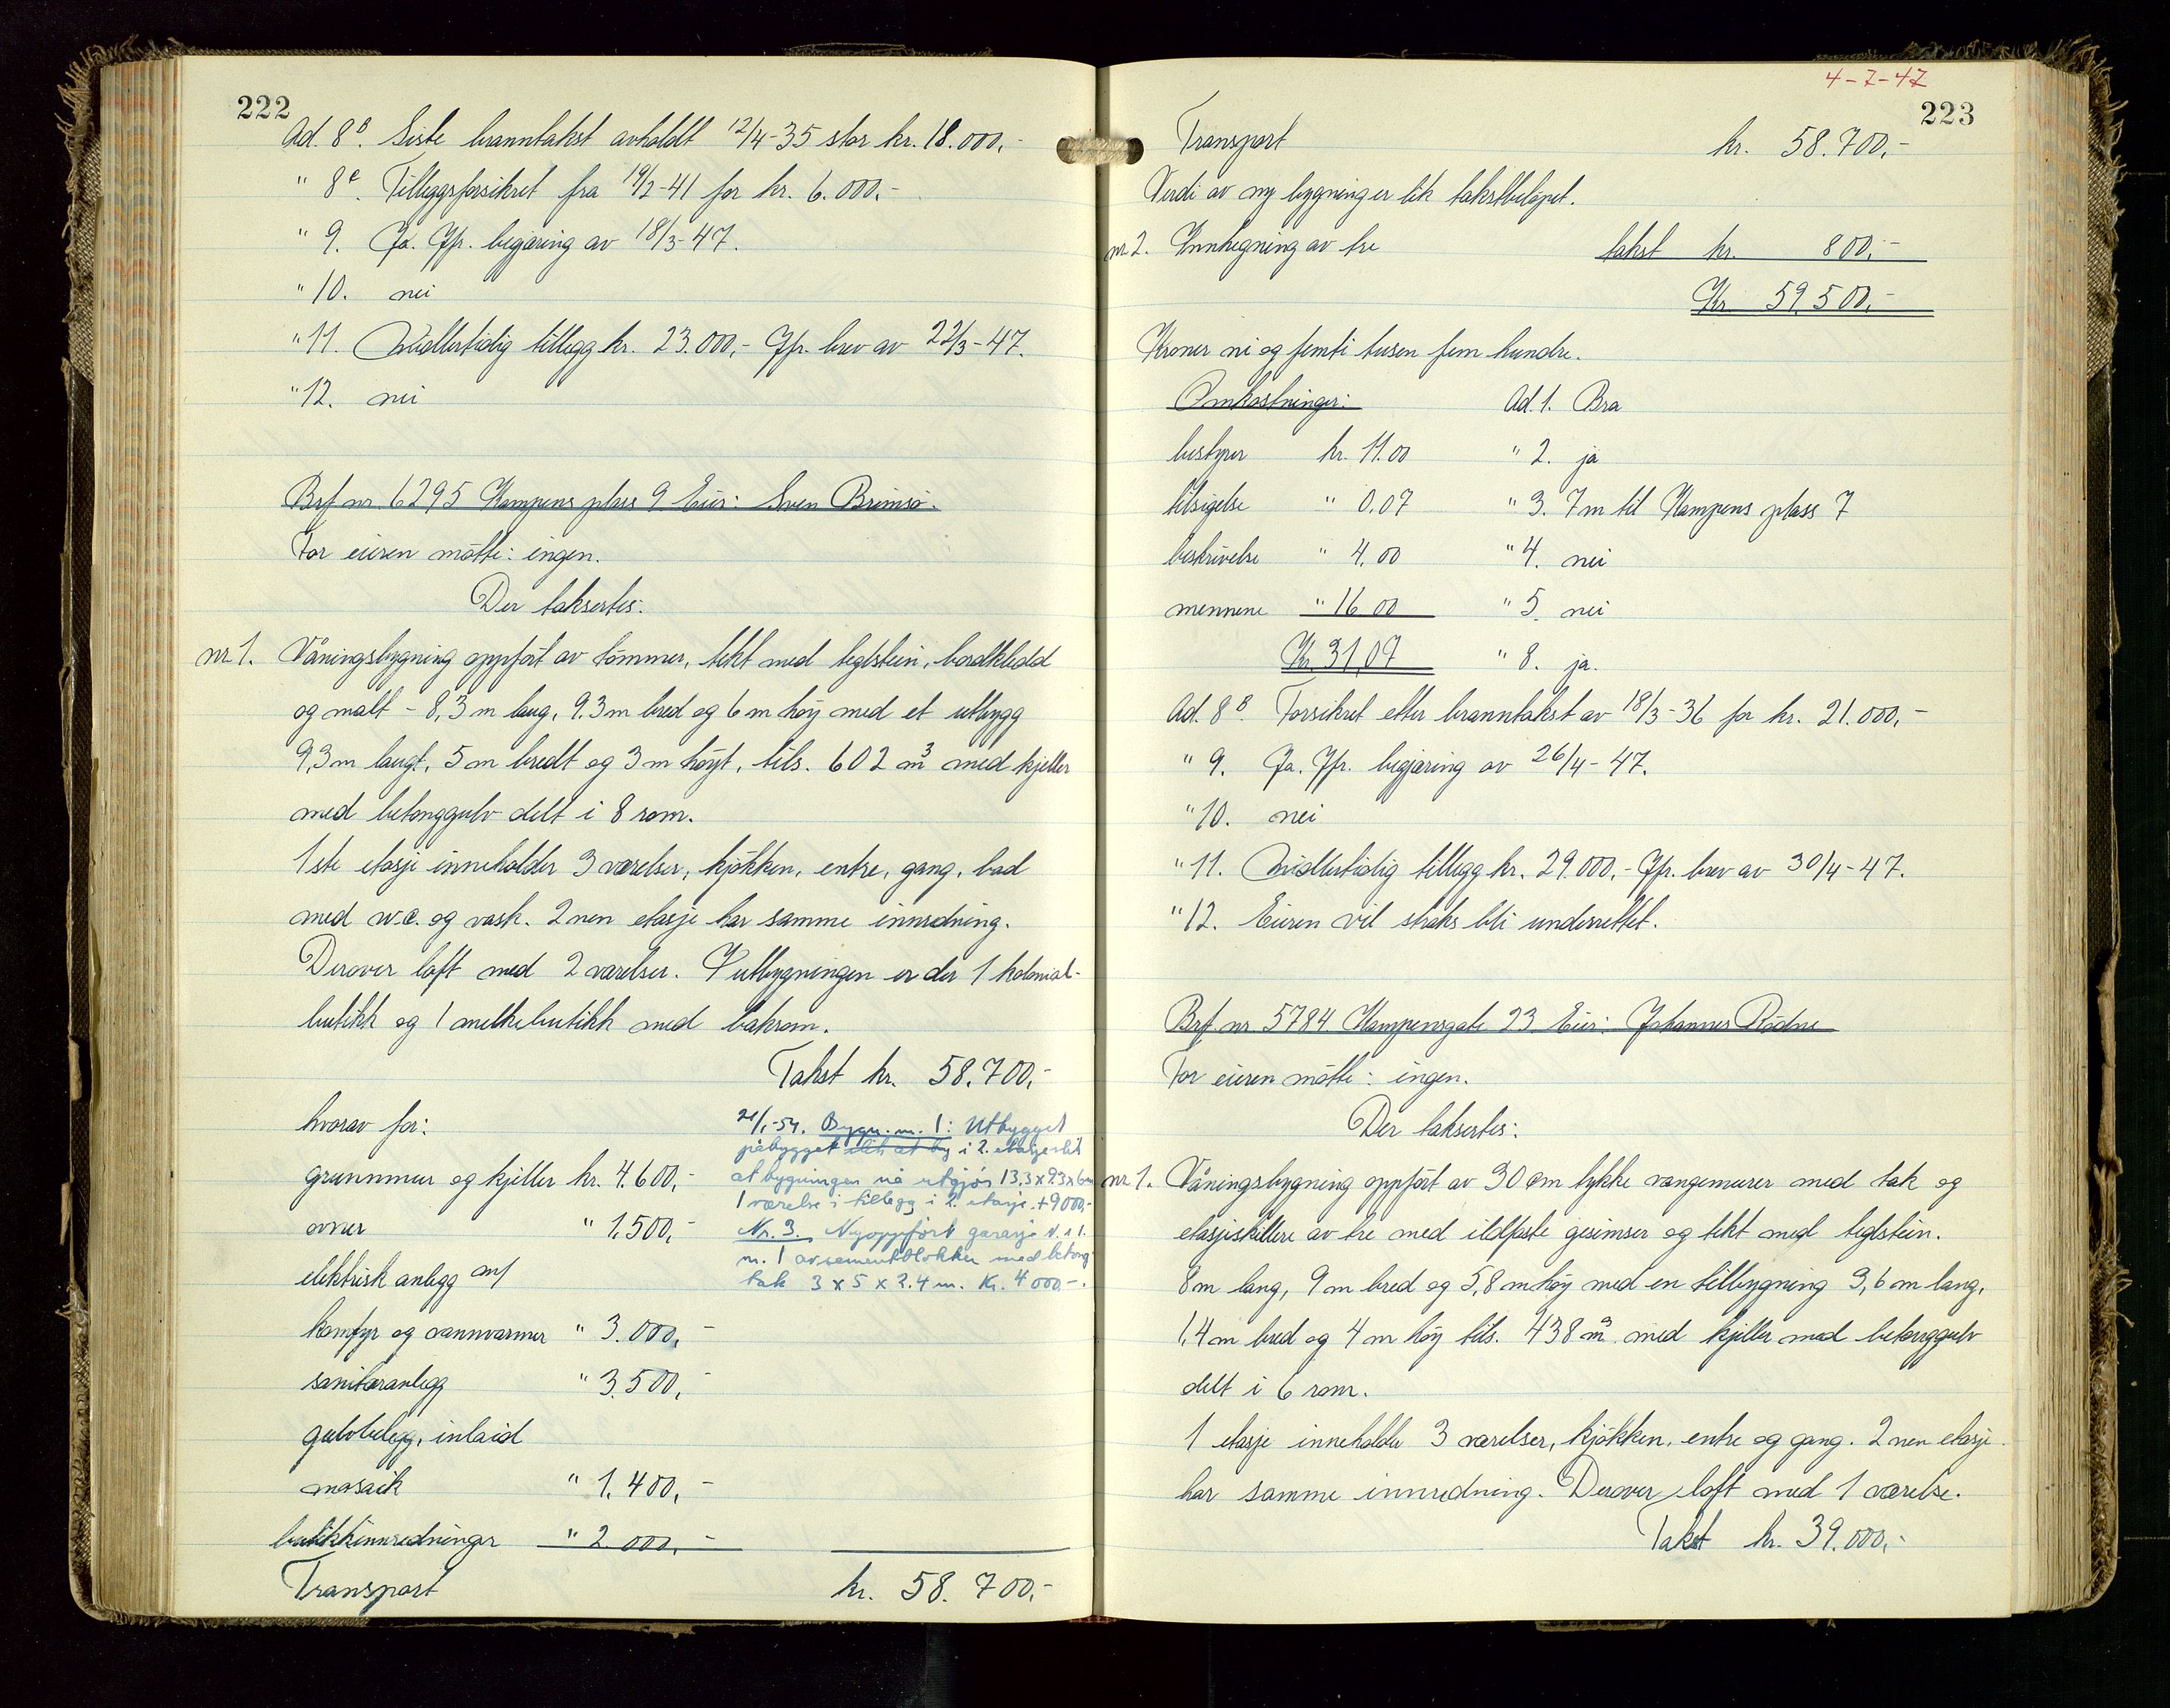 222
Ad. 8ᴮ. Siste branntakst avholdt 12/4-35 stor kr. 18.000,-
" 8ᶜ. Tilleggsforsikret fra 19/2-41 for kr. 6.000.-
" 9. Ja. Jfr. begjæring av 18/3-47.
" 10. nei
" 11. Midlertidig tillegg kr. 23.000,- Jfr. brev av 22/3-47.
" 12. nei
Brf nr. 6295 Kampens plass 9 Eier: Sven Brimsø.
For eieren møtte: ingen.
Der takseertes:
nr 1. Våningsbygning oppført av tømmer, tekt med teglstein, bordkledd
og malt - 8,3 m lang, 9,3 m bred og 6 m høy med et utbygg
9,3 m langt, 5 m bredt og 3 m høyt, tils. 602 m³ med kjeller
med betonggulv delt i 8 rom.
1ste etasje inneholder 3 værelser, kjøkken, entre, gang, bad
med w.c. og vask. 2nen etasje har samme innredning.
Derover loft med 2 værelser. I utbygningen er der 1 kolonial-
butikk og 1 melkebutikk med bakrom.
Takst kr. 58.700,-
hvorav for:
grunnmur og kjeller kr. 4.600,-
ovner " 1.500,-
elektrisk anlegg m/
komfyr og vannvarmer " 3.000,-
sanitæranlegg " 3.500,-
gulvbelegg, inlaid
mosaik " 1.400,-
butikkinnredninger " 2.000,-
Transport kr. 58.700,-
21/1-54. Bygn. nr. 1: Utbygget
påbygget slik at byg i 2. etasje slik
at bygningen nå utgjør 13,3 x 9,3 x 6m
1 værelse i tillegg i 2. etasje. + 9000,-
Nr. 3. Nyoppført garasje
nr. 1 av sementblokker med betong
tak 3 x 5 x 2.4 m. Kr. 4000.-.
4-7-47
223
Transport kr. 58.700,-
Verdi av ny bygning er lik takstbeløpet.
nr 2. Innhegning av tre takst kr. 800,-
Kr. 59.500,-
Kroner ni og femti tusen fem hundre.
Omkostninger: Ad. 1. Bra
bestyrer kr. 11.00 " 2. ja
tilsigelse " 0,07 " 3. 7m til Kampens plass 7
beskrivelse " 4,00 " 4. nei
mennene " 16 00 " 5. nei
Kr. 31,07 " 8. ja.
Ad. 8ᴮ. Forsikret etter branntakst av 18/3-36 for kr. 21.000,-
" 9. Ja. Jfr. begjæring av 26/4-47.
" 10. nei
" 11. Midlertidig tillegg kr. 29.000.- Jfr. brev av 30/4-47.
" 12. Eieren vil straks bli underrettet.
Brf nr 5784 Kampensgate 23 Eier: Johannes Rødne
For eieren møtte: ingen.
Der taksertes:
nr 1. Våningsbygning oppført av 30 cm tykke vangemurer med tak og
etasjeskillere av tre med ildfaste gesimser og tekt med teglstein.
8 m lang, 9 m bred og 5,8 m høy med en tilbygning 3,6 m lang,
1,4 m bred og 4 m høy tils. 438 m³. med kjeller med betonggulv
delt i 6 rom.
1 etasje inneholder 3 værelser, kjøkken, entre og gang. 2nen etasje
har samme innredning. Derover loft med 1 værelse.
Takst kr. 39.000,-